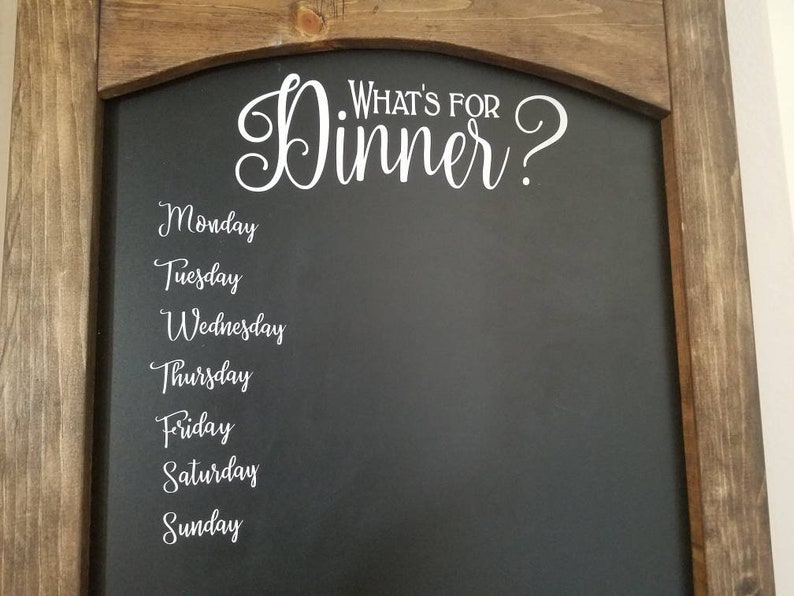 What's for
Dinner?
Monday
Tuesday
Wednesday
Thursday
Friday
Saturday
Sunday